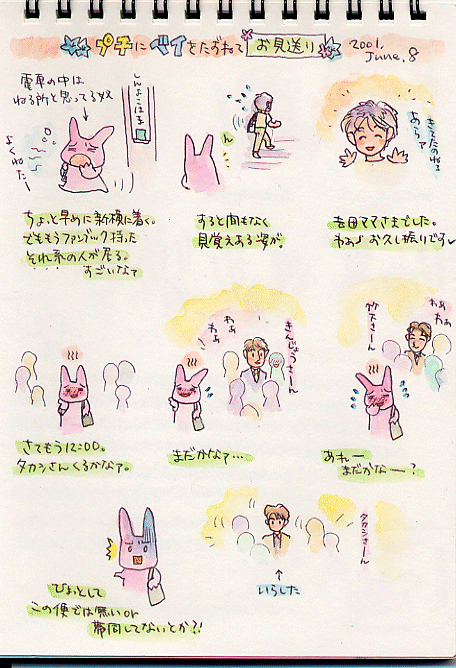 プチにベイをたずねて お見送り 2001. June. 8
電車の中は
ねる所と思ってる奴
しんよこはま
よくねたー
ん
あらァ
ちょっと早めに新横に着く。
でももうファンブック持った
それ系の人が居る。
すごいなァ
すると間もなく
見覚えある姿が。
ママさまでした。
わぁ♪ お久し振りです
わぁ
わぁ
きんじょうさーん
竹下さーん
わぁ
わぁ
さてもう12:00。
タカシさんくるかなァ。
まだかなァ…
あれー
まだかなー？
タカシさーん
いらした
ひょっとして
この便では無い or
帯同してないとか?!